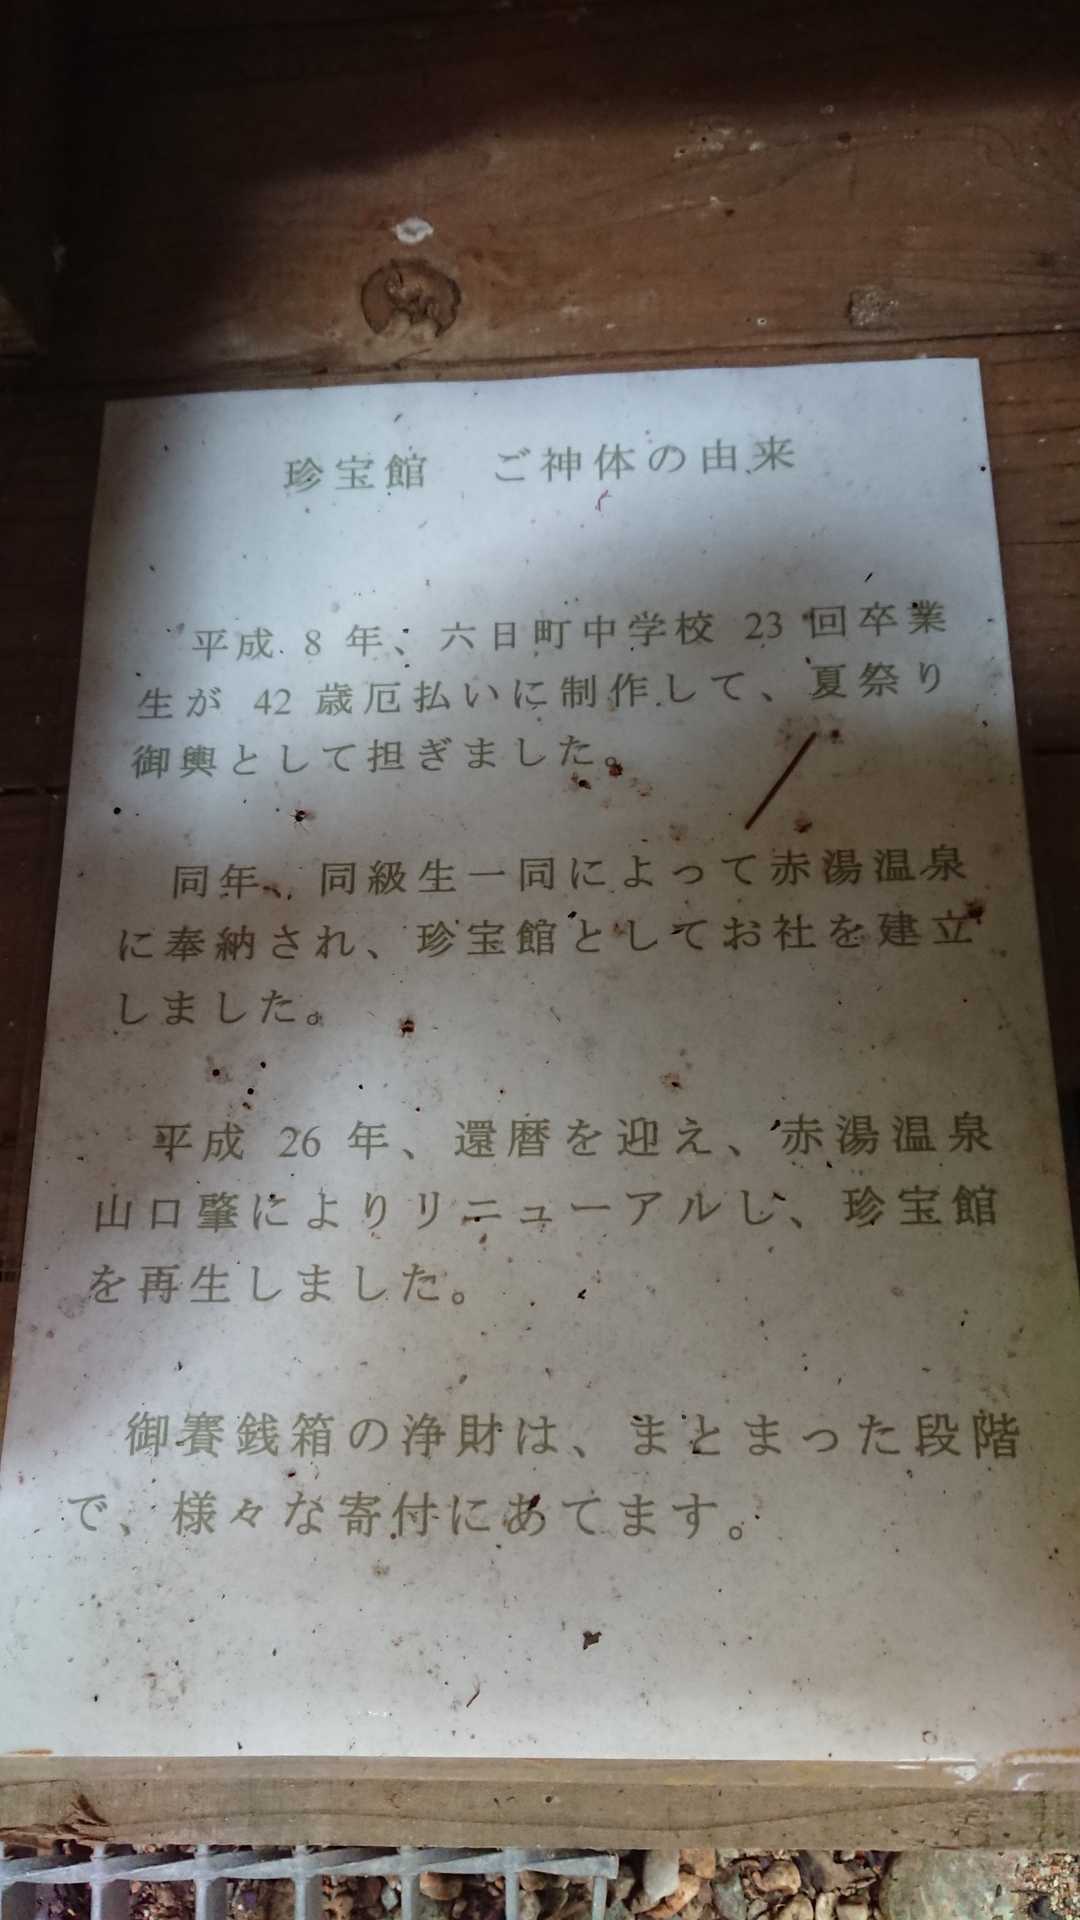 珍宝館　ご神体の由来
平成 8 年、六日町中学校 23 回卒業
生が 42 歳厄払いに制作して、夏祭り
御輿として担ぎました。
同年、同級生一同によって赤湯温泉
に奉納され、珍宝館としてお社を建立
しました。
平成 26 年、還暦を迎え、赤湯温泉
山口肇によりリニューアルし、珍宝館
を再生しました。
御賽銭箱の浄財は、まとまった段階
で、様々な寄付にあてます。